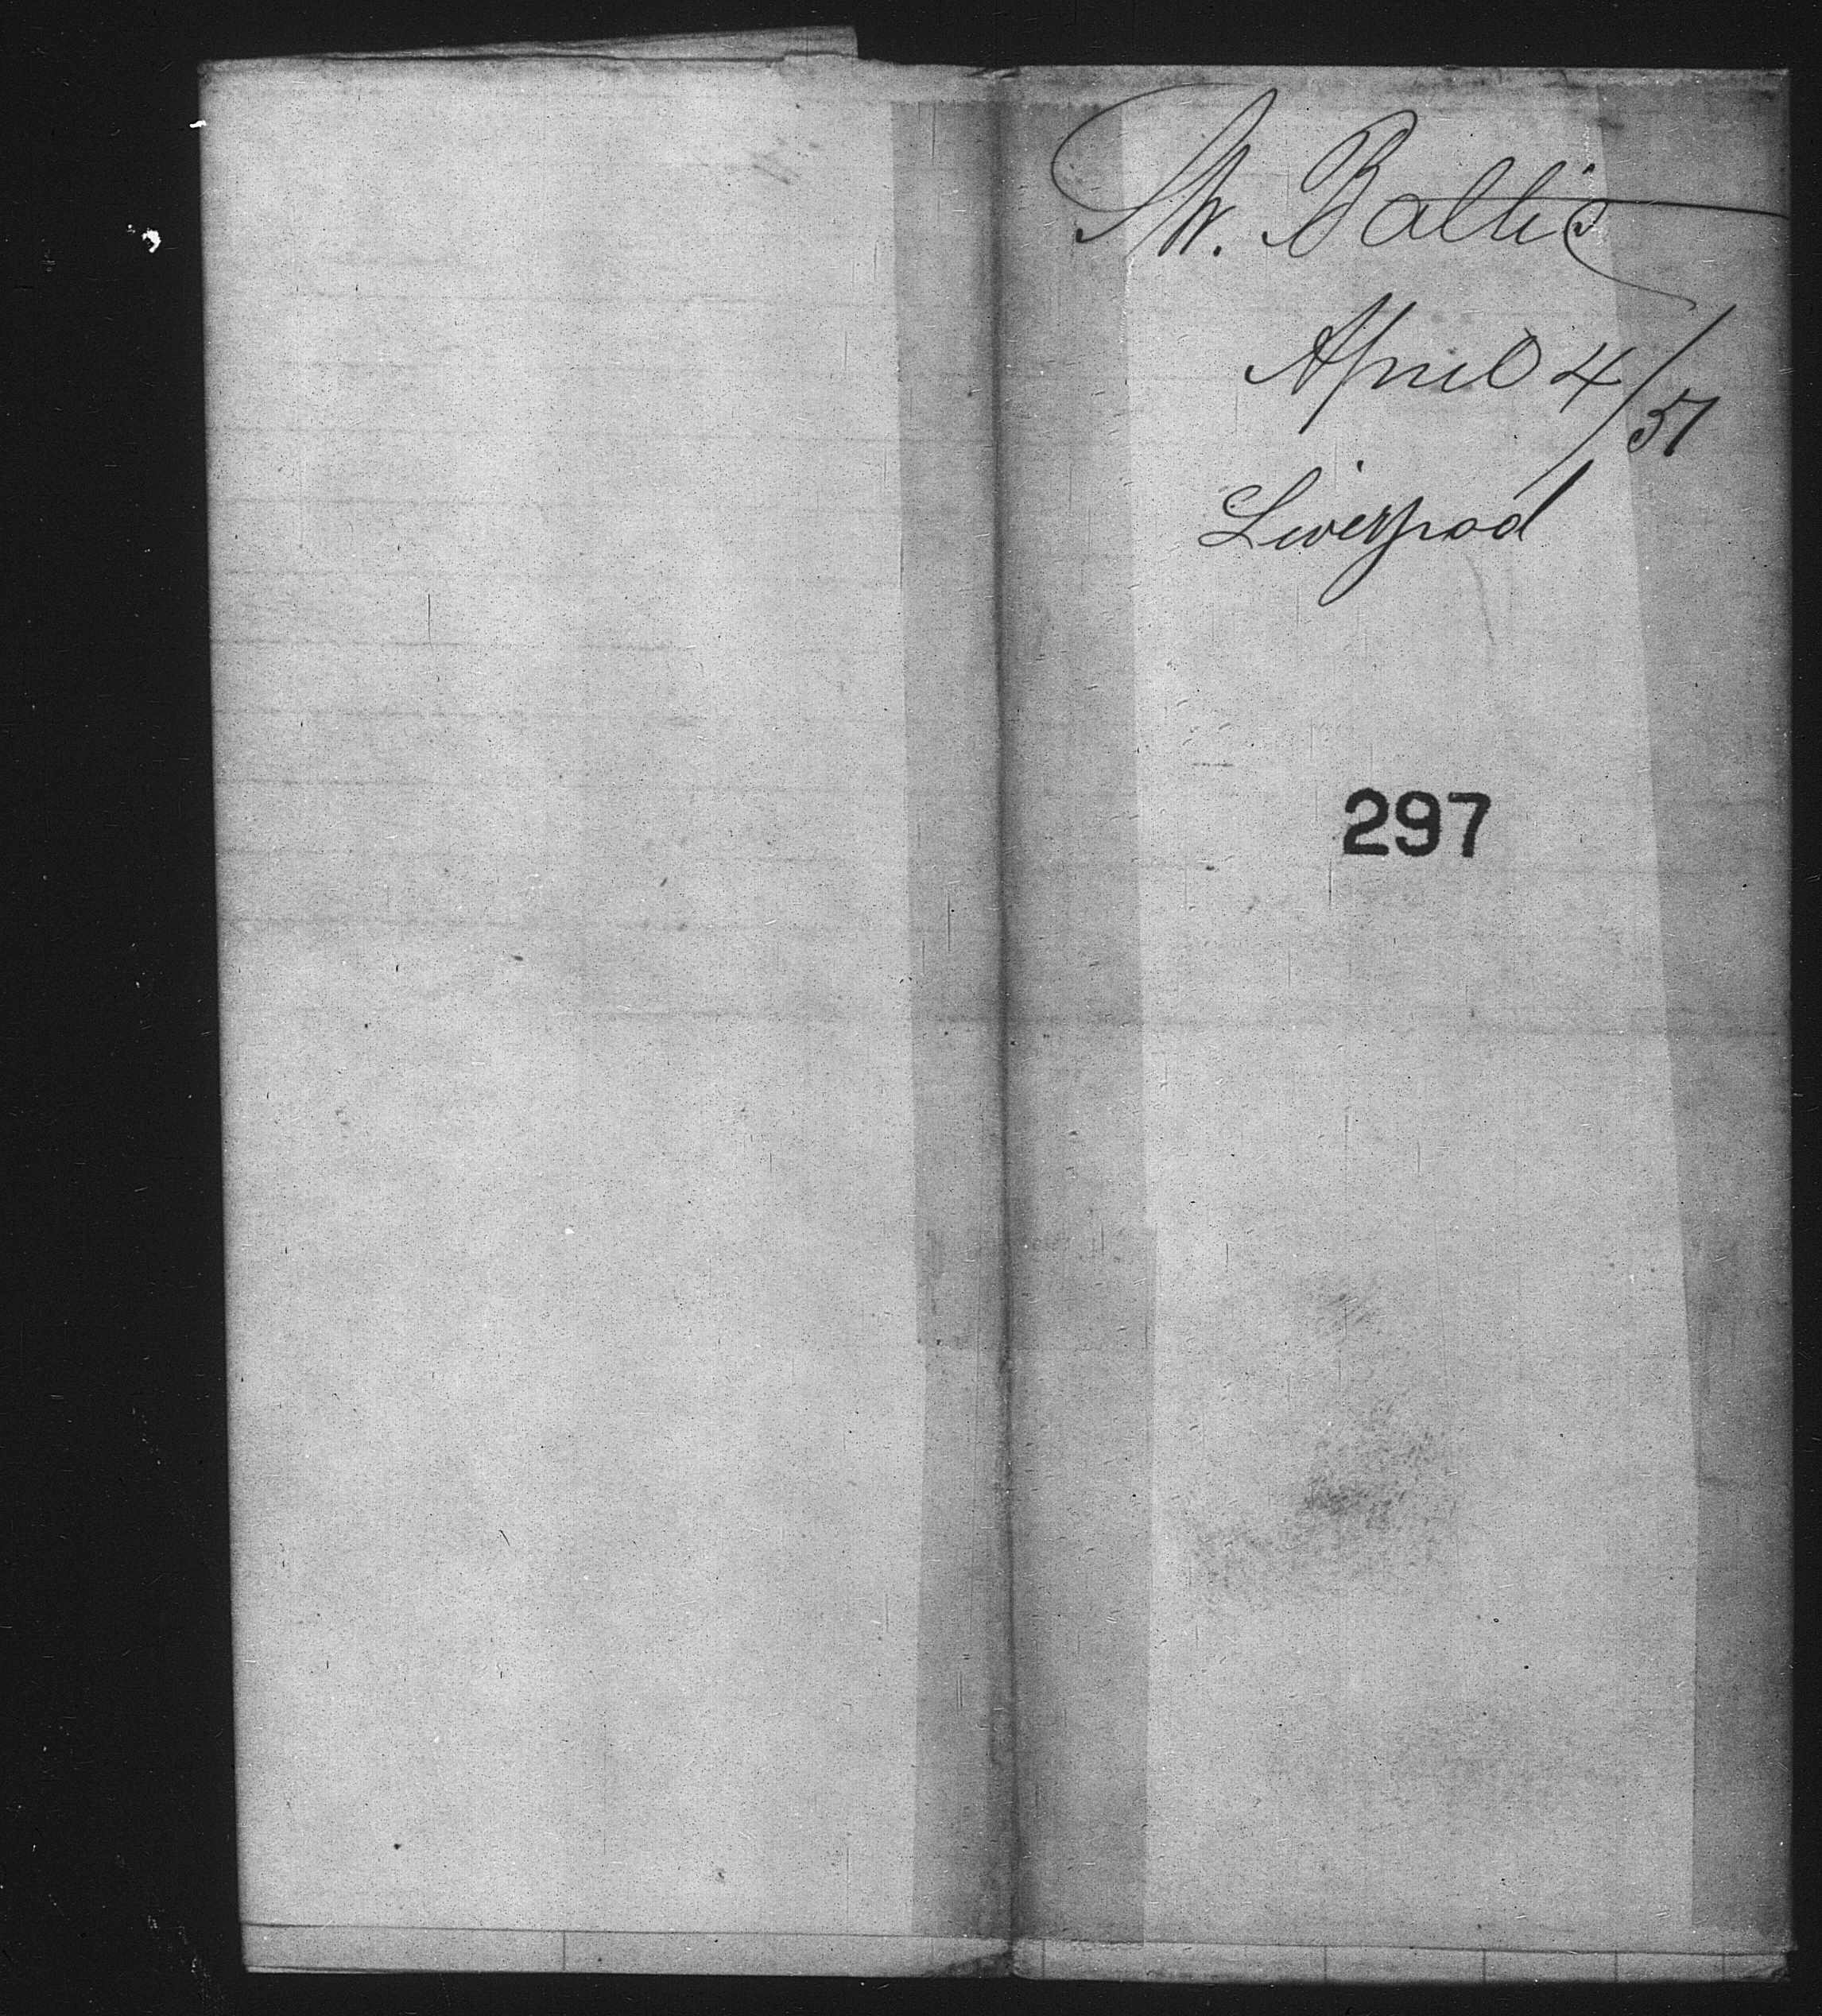 Str. Baltic
April 4/51
Liverpool
297